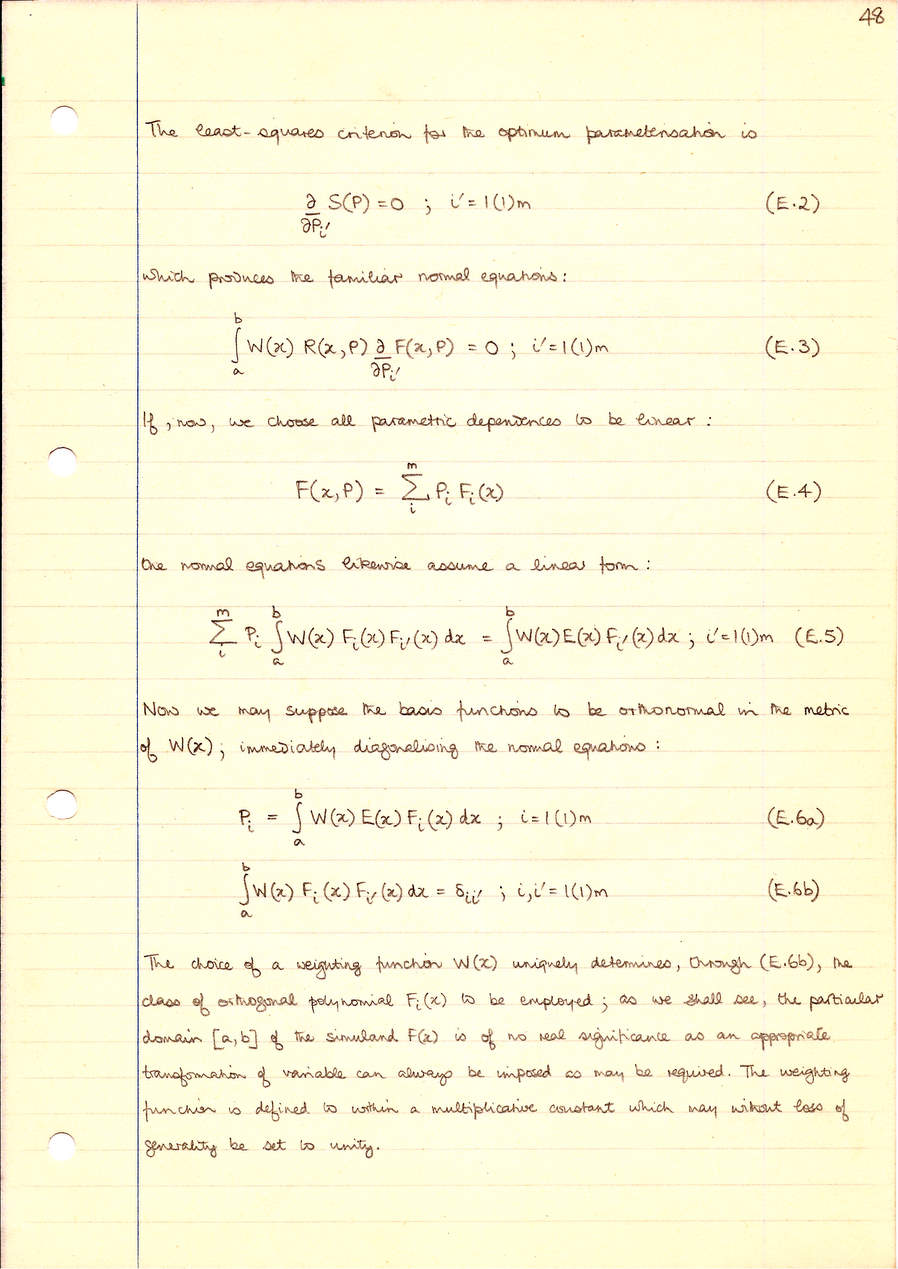 48
The least-squares criterion for the optimum parameterisation is
∂/∂Pᵢ′ S(P) = 0 ; i′ = 1(1)m (E.2)
which produces the familiar normal equations:
∫ₐᵇ W(x) R(x,P) ∂/∂Pᵢ′ F(x,P) = 0 ; i′ = 1(1)m (E.3)
If, now, we choose all parametric dependences to be linear :
F(x,P) = ∑ᵢᵐ Pᵢ Fᵢ(x) (E.4)
the normal equations likewise assume a linear form :
∑ᵢᵐ Pᵢ ∫ₐᵇ W(x) Fᵢ(x) Fᵢ′(x) dx = ∫ₐᵇ W(x) E(x) Fᵢ′(x) dx ; i′ = 1(1)m (E.5)
Now we may suppose the basis functions to be orthonormal in the metric
of W(x) ; immediately diagonalising the normal equations :
Pᵢ = ∫ₐᵇ W(x) E(x) Fᵢ(x) dx ; i = 1(1)m (E.6a)
∫ₐᵇ W(x) Fᵢ(x) Fᵢ′(x) dx = δᵢᵢ′ ; i,i′ = 1(1)m (E.6b)
The choice of a weighting function W(x) uniquely determines, through (E.6b), the
class of orthogonal polynomial Fᵢ(x) to be employed ; as we shall see, the particular
domain [a,b] of the simuland F(x) is of no real significance as an appropriate
transformation of variable can always be imposed as may be required. The weighting
function is defined to within a multiplicative constant which may without loss of
generality be set to unity.